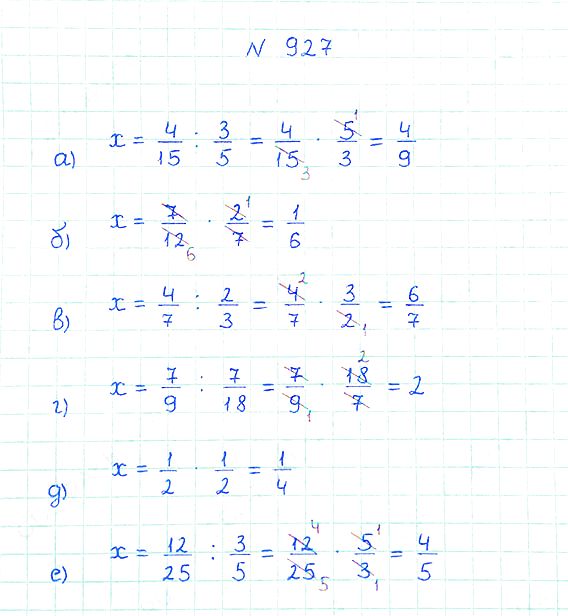 N 927
а) x = 4/15 : 3/5 = 4/15 3 · 5/3 1 = 4/9
б) x = 7/12 6 · 2/7 1 = 1/6
в) x = 4/7 : 2/3 = 4/7 2 · 3/2 1 = 6/7
г) x = 7/9 : 7/18 = 7/9 1 · 18/7 2 = 2
д) x = 1/2 · 1/2 = 1/4
е) x = 12/25 : 3/5 = 12/25 4 5 · 5/3 1 1 = 4/5